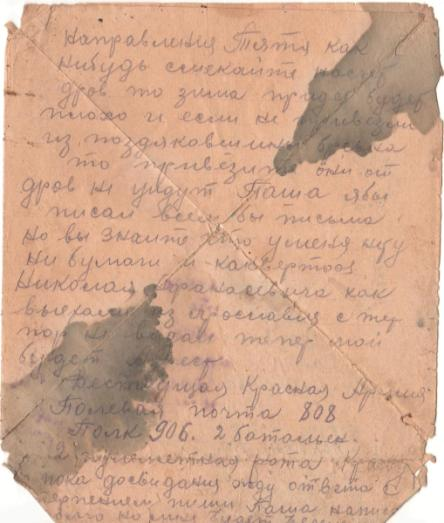 направления Тятя как
нибудь смекайте насчет
дров то зима придет будет
плохо и если не привезли
из поздяковщины
то привезите они от
дров не уйдут Паша я бы
писал всем бы письма
но вы знаите што уменя нету
ни бумаги и канвертоов
Николая Афанасьевича как
выехали из Ярославля с тех
пор не видал теперь мой
будет адрест
Действующая Красная Армия
Полевая почта 808
Полк 906. 2 батальен.
2 пулеметная рота
пока досвидания жду ответа с
терпением пиши Паша